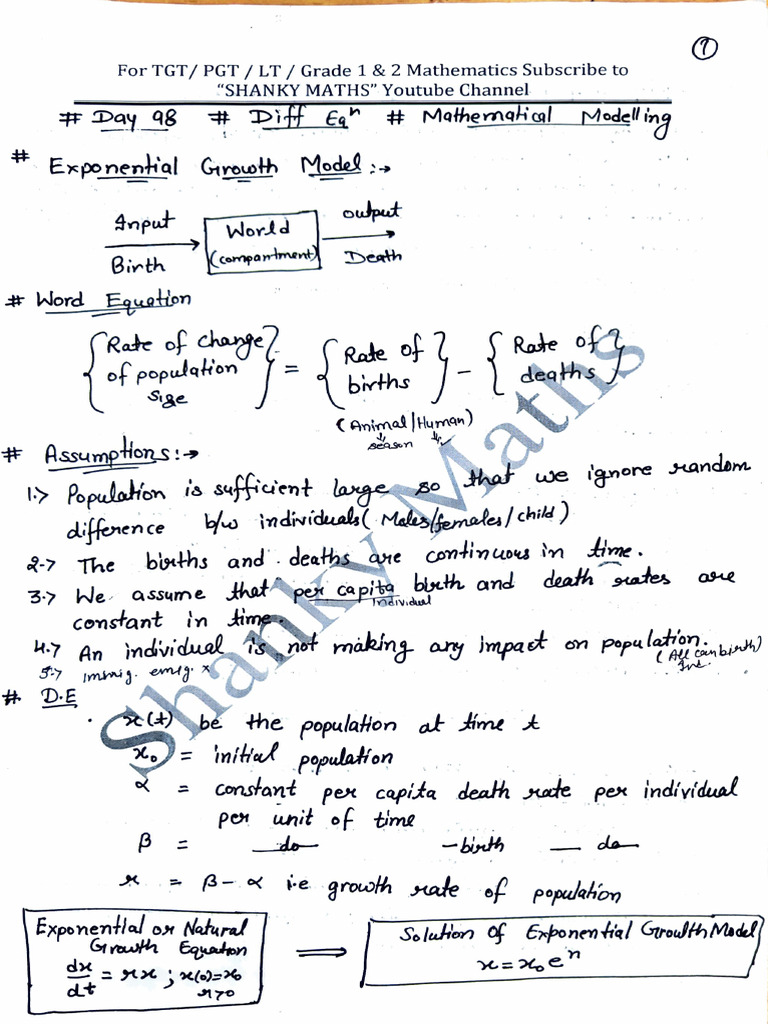 1
For TGT/ PGT / LT / Grade 1 & 2 Mathematics Subscribe to
“SHANKY MATHS” Youtube Channel
# Day 98 # Diff Eqⁿ # Mathematical Modelling
# Exponential Growth Model :→
Input
Birth
World
(compartment)
output
Death
# Word Equation
{Rate of change of population size} = {Rate of births} - {Rate of deaths}
(Animal/Human)
season ✓
# Assumptions :→
1.> Population is sufficient large so that we ignore random
difference b/w individuals (Males/females/child)
2.> The births and deaths are continuous in time.
3.> We assume that per capita birth and death rates are
individual
constant in time.
4.> An individual is not making any impact on population.
(All can birth)
5.> immig. emig. x
# D.E
x(t) be the population at time t
x₀ = initial population
α = constant per capita death rate per individual
per unit of time
β = —do— —birth — do—
r = β - α i.e growth rate of population
Exponential or Natural
Growth Equation
dx/dt = rx ; x(0)=x₀
r>0
⟹
Solution Of Exponential Growlth Model
x = x₀eⁿ
Shanky Maths